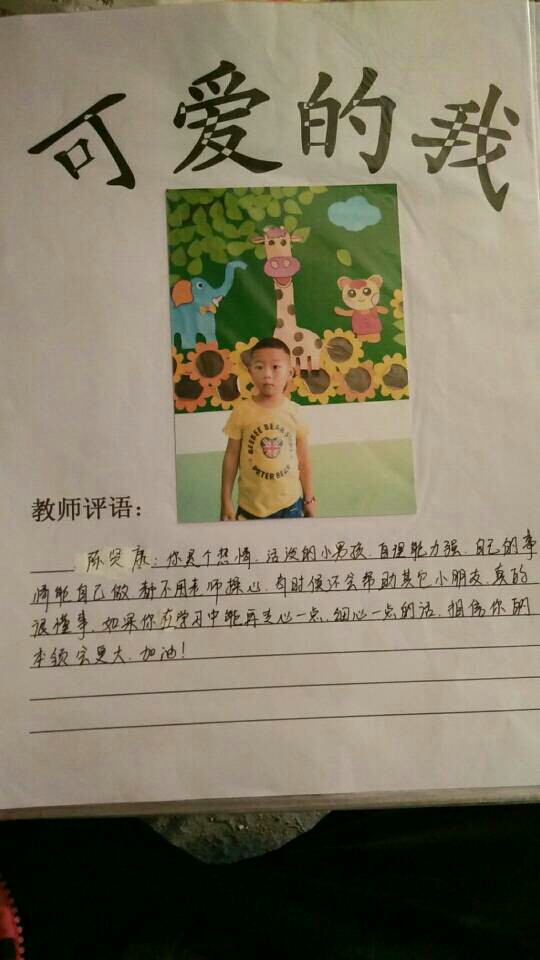 可爱的我
BEEBEE BEAR
PETER BEAR
教师评语：
陈奕康：你是个热情、活泼的小男孩，自理能力强，自己的事
情能自己做，都不用老师操心，有时候还会帮助其它小朋友，真的
很懂事，如果你在学习中能再专心一点，细心一点的话，相信你的
本领会更大，加油！